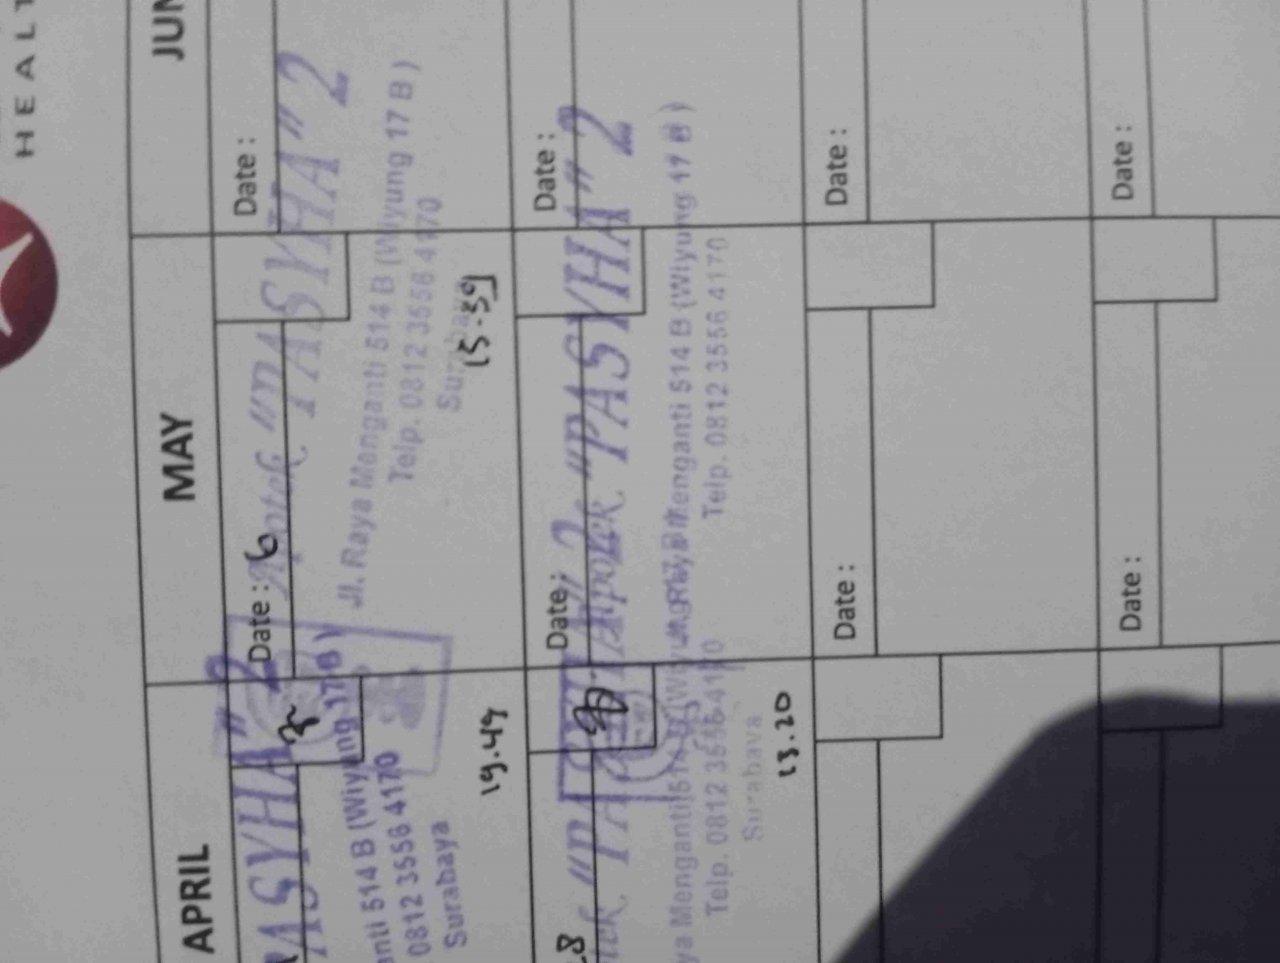 HEALT
APRIL
MAY
JUN
PASYHA" 2
anti 514 B (Wiyung 17 B)
0812 3556 4170
Surabaya
19.49
Date : 6
Apotek "PASYHA" 2
Jl. Raya Menganti 514 B (Wiyung 17 B)
Telp. 0812 3556 4170
Surabaya
15.59
Date :
"PASYHA" 2
ya Menganti 514 B (Wiyung 17 B)
Telp. 0812 3556 4170
Surabaya
13.20
Date :
Apotek "PASYHA" 2
Menganti 514 B (Wiyung 17 B)
Telp. 0812 3556 4170
Date :
Date :
Date :
Date :
Date :